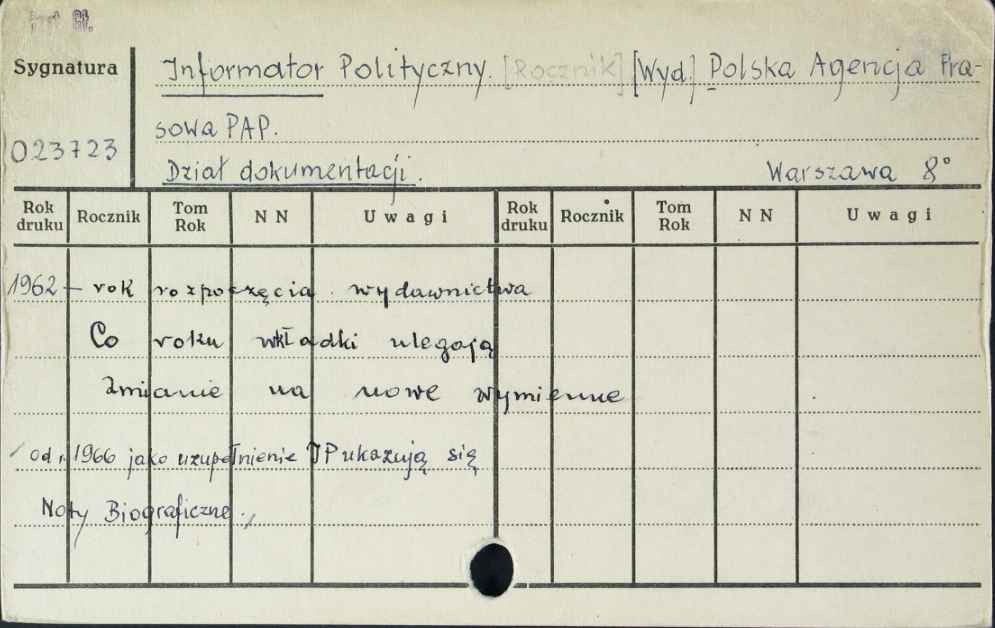 Gł.
Sygnatura
023723
Informator Polityczny. [Rocznik] [Wyd.] Polska Agencja Pra-
sowa PAP.
Dział dokumentacji. Warszawa 8°
Rok druku Rocznik Tom Rok NN Uwagi Rok druku Rocznik Tom Rok NN Uwagi
1962 – rok rozpoczęcia wydawnictwa
Co roku wkładki ulegają
zmianie na nowe wymienne
/ od r. 1966 jako uzupełnienie IP ukazują się
Noty Biograficzne. /